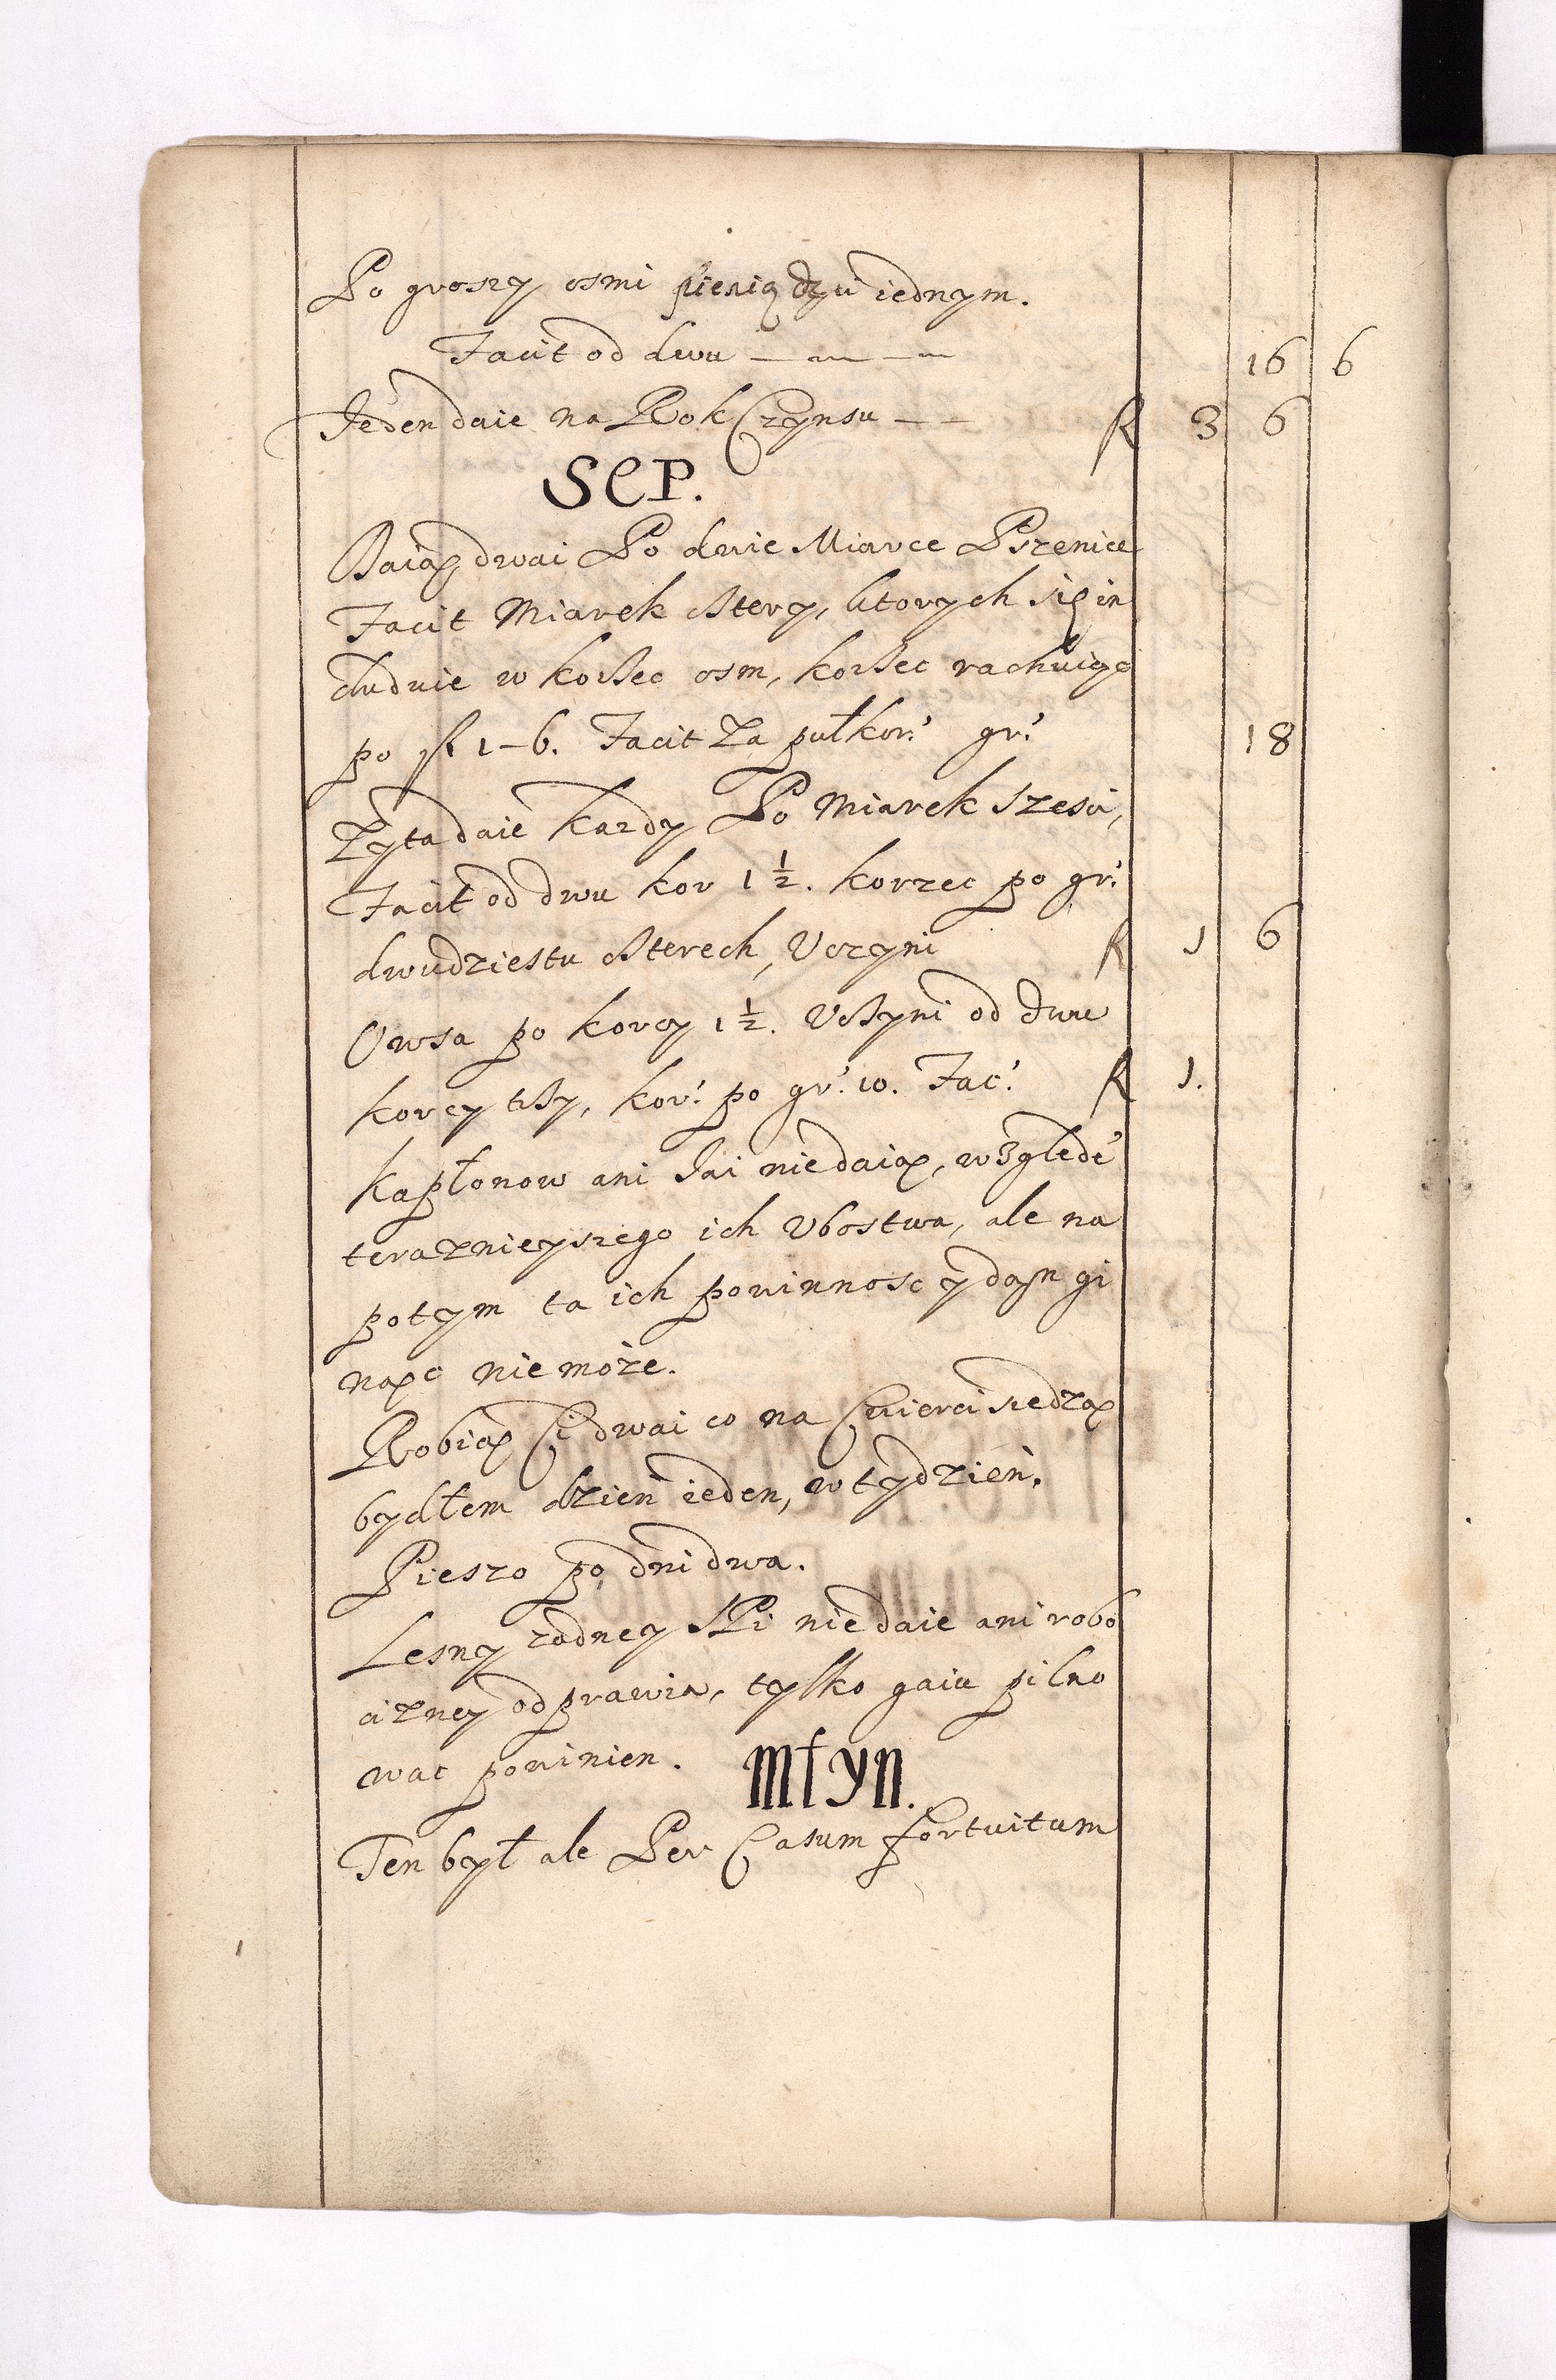 Po groszy osmi pieniądzu iednym.
Facit od dwu — — — — 16 6
Jeden daie na Rok Czynsu — — fl 3 6
SEP.
Daią dwai Po dwie Miarce Pszenice
Facit Miarek cztery, ktorych się in
cludnie w korzec osm, korzec rachuiąc
po fl 1-6. Facit Za pułkor: gr: 18
Zyta daie kazdy Po Miarek szesci,
Facit od dwu kor 1 1/2. korzec po gr:
dwudziestu czterech, Uczyni fl 1 6
Owsa po korcy 1 1/2. Uczyni od dwu
korcy trzy, kor: po gr: 10. Fac: fl 1.
kapłonow ani Jai niedaią, wzgledē
teraznieyszego ich Ubostwa, ale na
potym ta ich powinnosc y dań gi
nąc niemoże.
Robią Ci dwai co na Cwierci siedzą
bydłem dzień ieden, w tydzień.
Pieszo po dni dwa.
Lesny zadney niedaie ani robo
cizney odprawia, tylko gaiu pilno
wac powinien. młyn.
Ten był ale Per Casum fortuitum